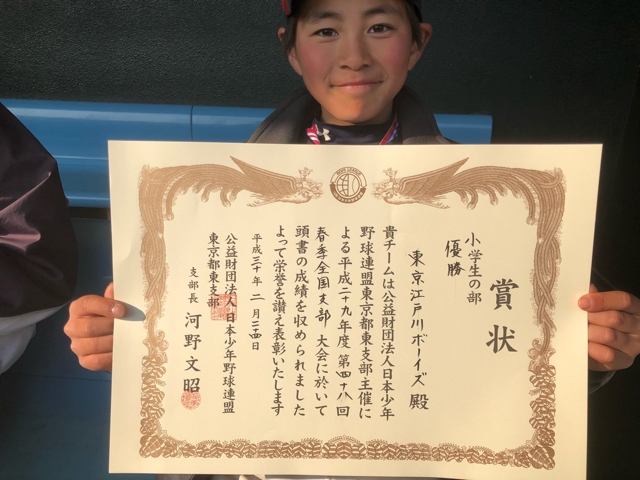 賞状
小学生の部
優勝
東京江戸川ボーイズ 殿
貴チームは公益財団法人日本少年
野球連盟東京都東支部主催に
よる平成二十九年度 第四十八回
春季全国支部 大会に於いて
頭書の成績を収められました
よって栄誉を讃え表彰いたします
平成三十年 二月二十四日
公益財団法人 日本少年野球連盟
東京都東支部
支部長 河野文昭